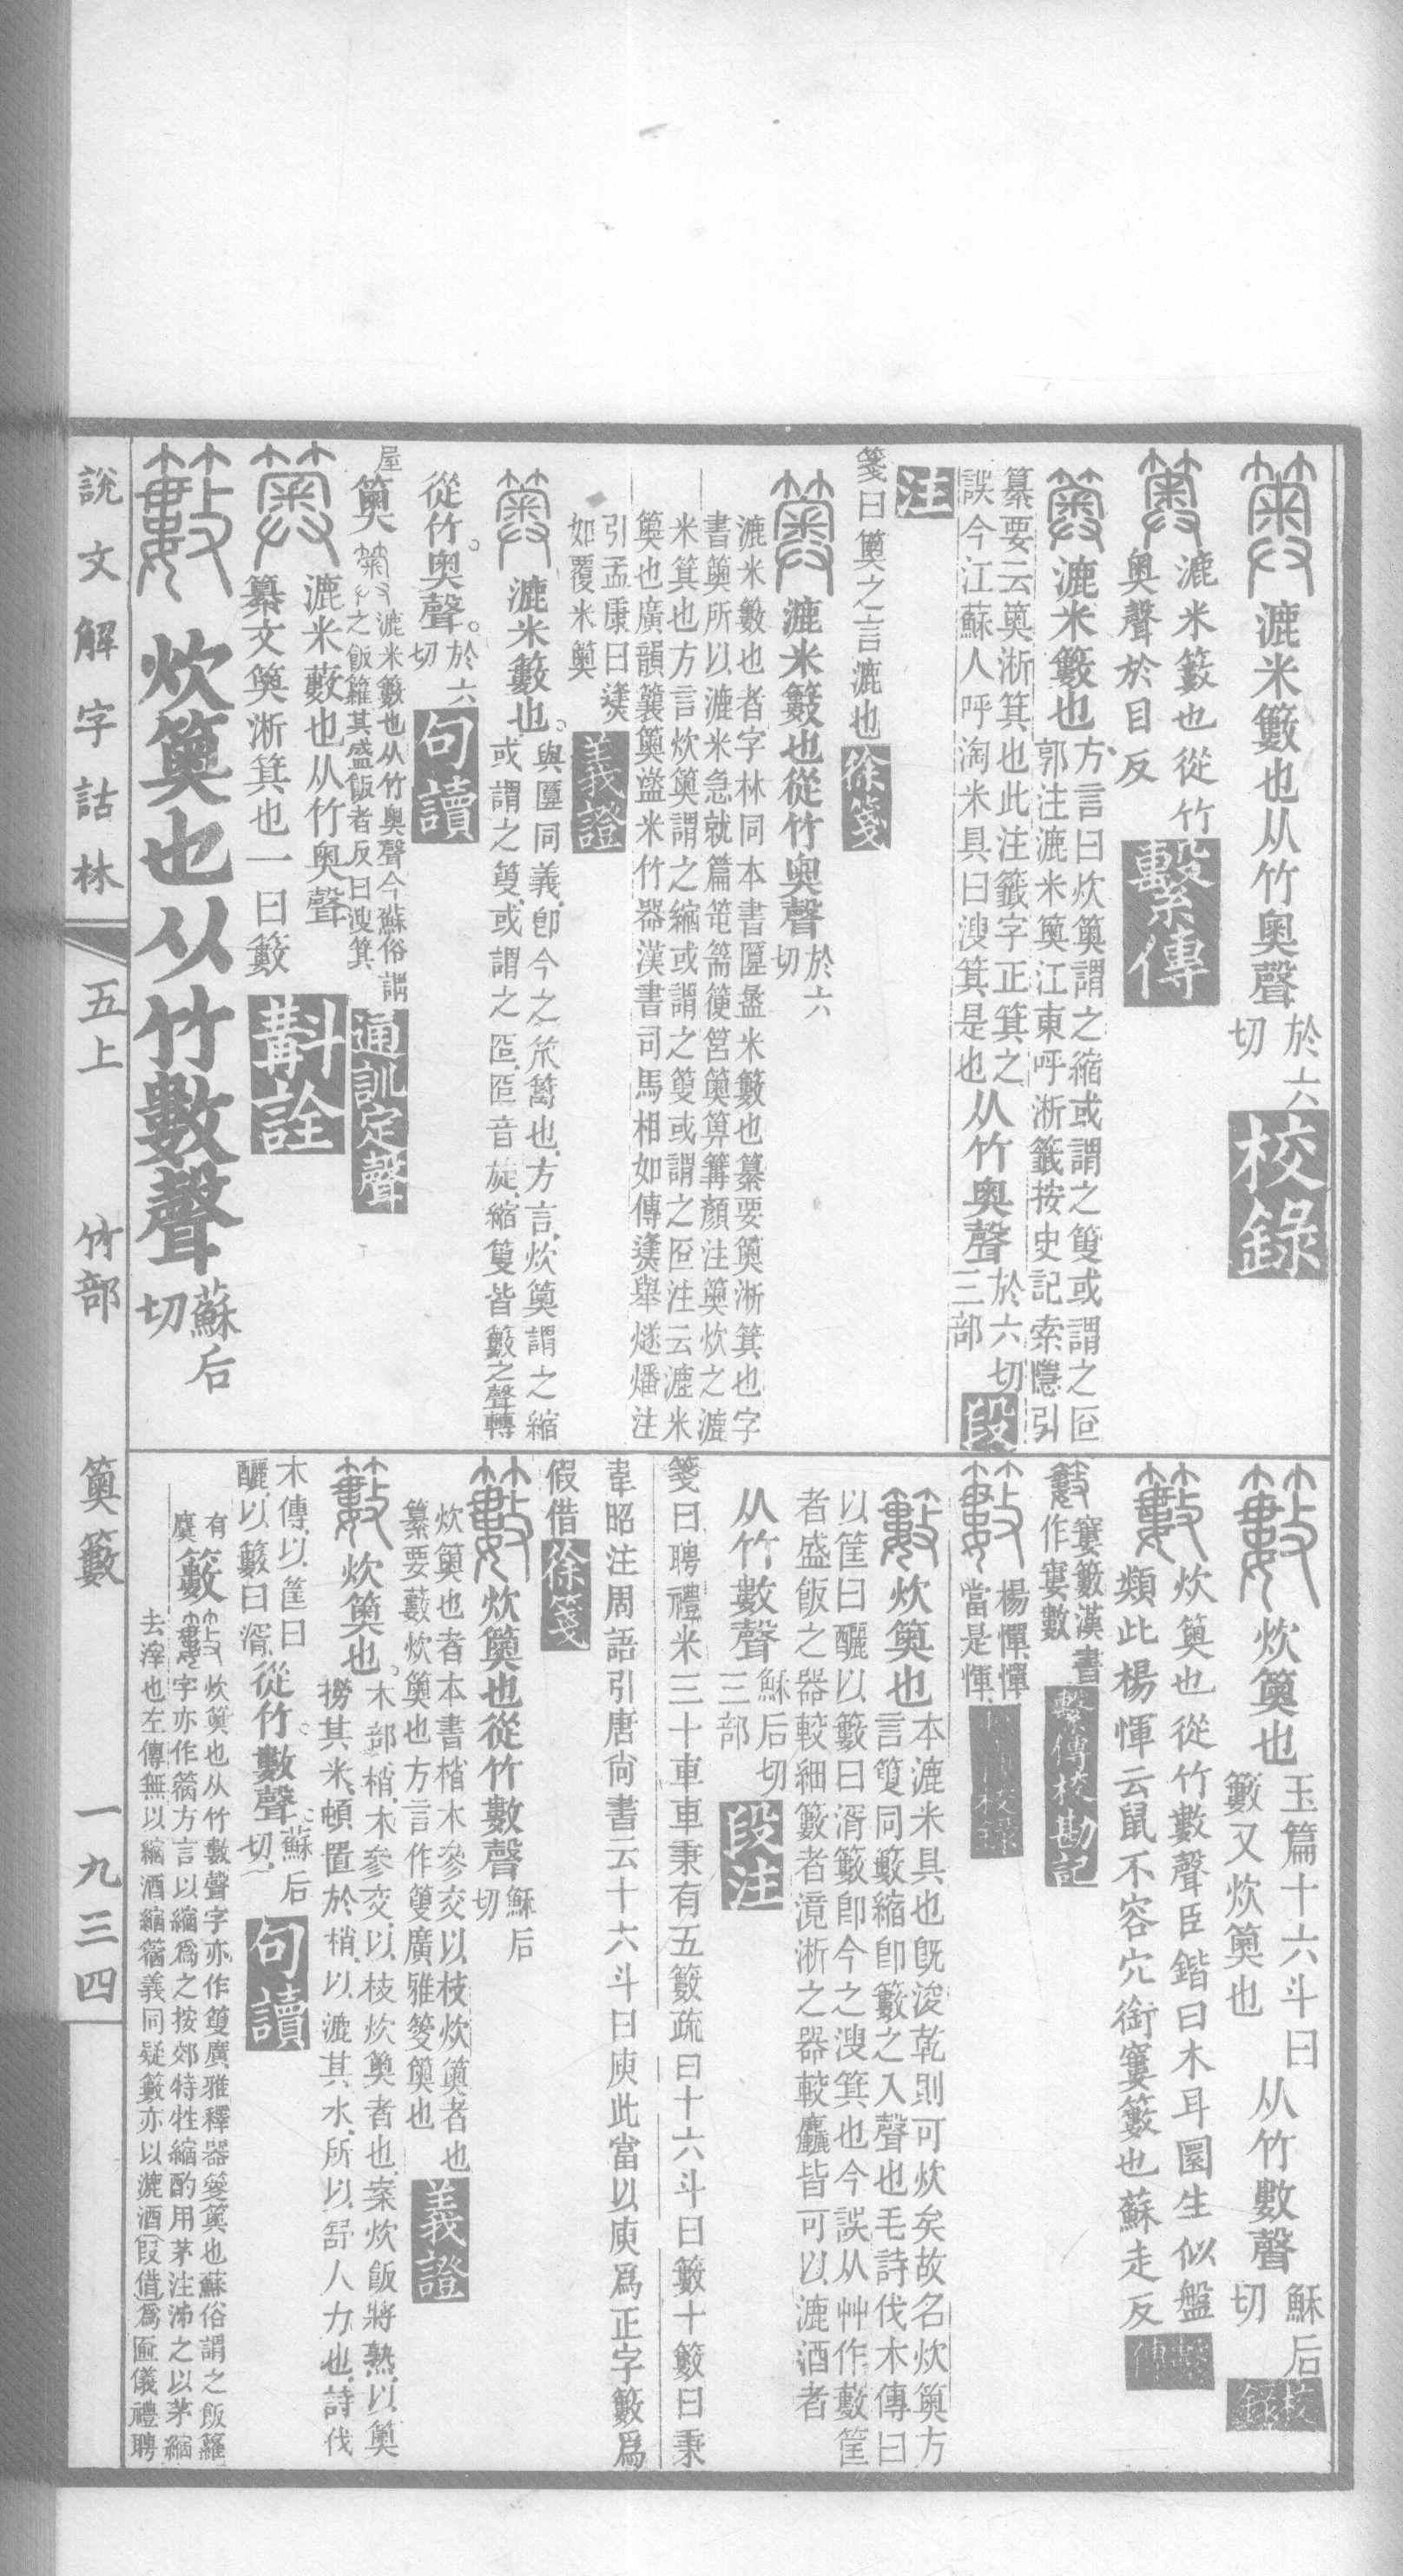 漉米籔也从竹奧聲於六切 校錄
漉米籔也從竹奧聲於目反 繫傳
漉米籔也方言曰炊䉛謂之縮或謂之䉤或謂之㔯郭注漉米䉛江東呼淅籤按史記索隱引
纂要云䉛淅箕也此注籤字正箕之誤今江蘇人呼淘米具曰溲箕是也从竹奧聲於六切三部 段注
箋曰䉛之言漉也 徐箋
漉米籔也從竹奧聲於六切
漉米籔也者字林同本書匴盝米籔也纂要䉛淅箕也字
書䉛所以漉米急就篇笔篅箯筥䉛箅篝顏注䉛炊之漉
米箕也方言炊䉛謂之縮或謂之䉤或謂之㔯注云漉米
䉛也廣韻䉴䉛盝米竹器漢書司馬相如傳㷭舉燧燔注
引孟康曰㷭如覆米䉛 義證
漉米籔也。與匴同義卽今之笊篱也方言炊䉛謂之縮
或謂之䉤或謂之㔯㔯音旋縮䉤皆籔之聲轉
從竹奧聲。於六切 句讀
屋 䉛 漉米籔也从竹奧聲今蘇俗謂之飯籮其盛飯者反曰溲箕 通訓定聲
漉米籔也从竹奧聲
纂文䉛淅箕也一曰籔 斠詮
炊䉛也从竹數聲蘇后切
炊䉛也玉篇十六斗曰籔又炊䉛也从竹數聲穌后切 校錄
炊䉛也從竹數聲臣鍇曰木耳圜生似盤
類此楊惲云鼠不容穴銜窶籔也蘇走反 繫傳
籔窶籔漢書作寠數 繫傳校勘記
楊惲惲當是惲
炊䉛也本漉米具也旣浚乾則可炊矣故名炊䉛方
言䉤同籔縮卽籔之入聲也毛詩伐木傳曰
以筐曰釃以籔曰湑籔卽今之溲箕也今誤从艸作藪筐
者盛飯之器較細籔者滰淅之器較麤皆可以漉酒者
从竹數聲穌后切三部 段注
箋曰聘禮米三十車車秉有五籔疏曰十六斗曰籔十籔曰秉
韋昭注周語引唐尙書云十六斗曰庾此當以庾爲正字籔爲
假借 徐箋
炊䉛也從竹數聲穌后切
炊䉛也者本書梢木參交以枝炊䉛者也
纂要藪炊䉛也方言作䉤廣雅䈹䉛也 義證
炊䉛也。木部梢木參交以枝炊䉛者也案炊飯將熟以䉛
撈其米頓置於梢以漉其水所以舒人力也詩伐
木傳以筐曰釃以籔曰湑從竹數聲。蘇后切 句讀
有麌 籔 炊䉛也从竹數聲字亦作䉤廣雅釋器䈹䉛也蘇俗謂之飯籮
字亦作䈮方言以縮爲之按郊特牲縮酌用茅注沛之以茅縮
去滓也左傳無以縮酒縮䈮義同疑籔亦以漉酒假借爲匬儀禮聘
說文解字詁林
五上
竹部
䉛籔
一九三四